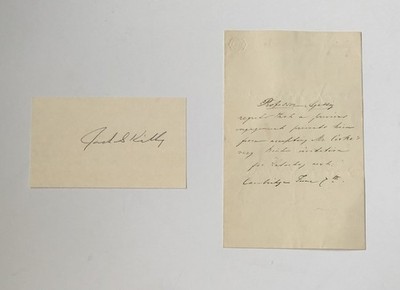 Jack S Kilby
Professor
regrets that a previous
engagement prevents him
from accepting Mr
very kind invitation
for Saturday next
Cambridge June 7th.